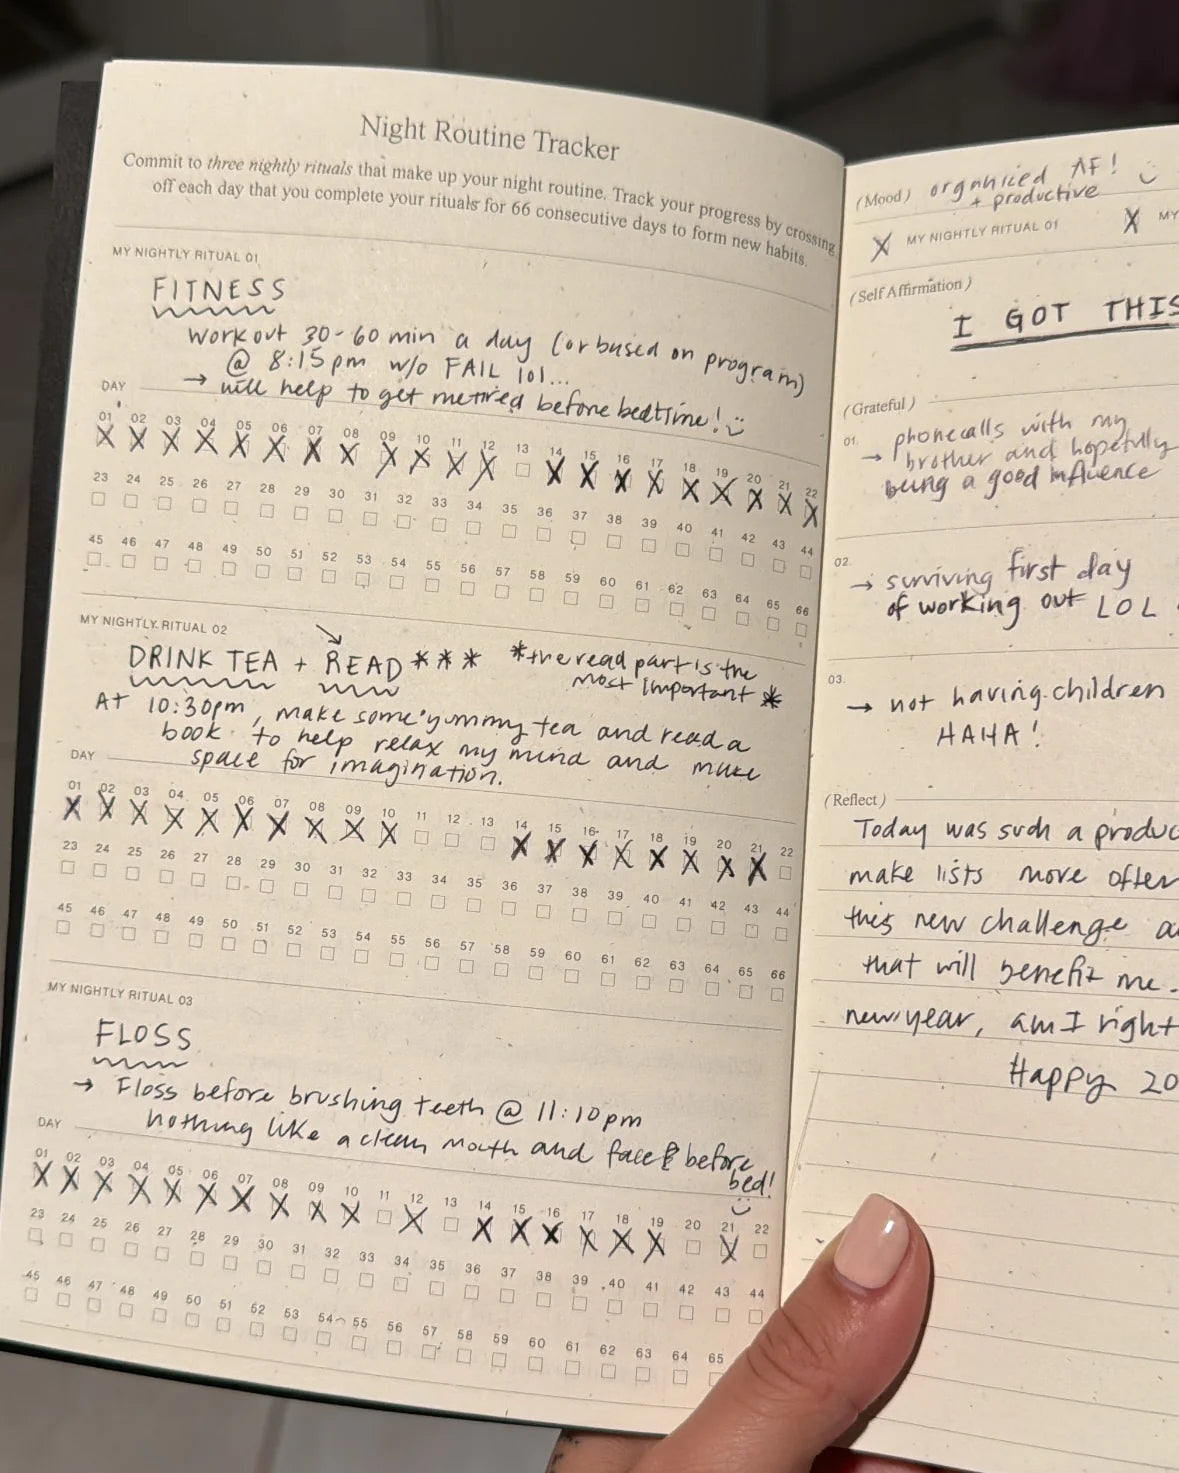 Night Routine Tracker
Commit to three nightly rituals that make up your night routine. Track your progress by crossing
off each day that you complete your rituals for 66 consecutive days to form new habits.
MY NIGHTLY RITUAL 01
FITNESS
workout 30-60 min a day (or based on program)
@ 8:15pm w/o FAIL lol...
→ will help to get me tired before bedtime! :)
DAY
01 02 03 04 05 06 07 08 09 10 11 12 13 14 15 16 17 18 19 20 21 22
23 24 25 26 27 28 29 30 31 32 33 34 35 36 37 38 39 40 41 42 43 44
45 46 47 48 49 50 51 52 53 54 55 56 57 58 59 60 61 62 63 64 65 66
MY NIGHTLY RITUAL 02
DRINK TEA + READ*** *the read part is the
most important*
At 10:30pm, make some yummy tea and read a
book to help relax my mind and make
space for imagination.
DAY
01 02 03 04 05 06 07 08 09 10 11 12 13 14 15 16 17 18 19 20 21 22
23 24 25 26 27 28 29 30 31 32 33 34 35 36 37 38 39 40 41 42 43 44
45 46 47 48 49 50 51 52 53 54 55 56 57 58 59 60 61 62 63 64 65 66
MY NIGHTLY RITUAL 03
FLOSS
→ Floss before brushing teeth @ 11:10pm
nothing like a clean mouth and face before
bed!
:)
DAY
01 02 03 04 05 06 07 08 09 10 11 12 13 14 15 16 17 18 19 20 21 22
23 24 25 26 27 28 29 30 31 32 33 34 35 36 37 38 39 40 41 42 43 44
45 46 47 48 49 50 51 52 53 54 55 56 57 58 59 60 61 62 63 64 65
(Mood) organized AF! :)
+ productive
X MY NIGHTLY RITUAL 01 X MY
(Self Affirmation)
I GOT THIS
(Grateful)
01.
→ phonecalls with my
brother and hopefully
being a good influence
02.
→ surviving first day
of working out LOL
03.
→ not having children
HAHA!
(Reflect)
Today was such a produc
make lists more often
this new challenge a
that will benefit me.
new year, am I right
Happy 20